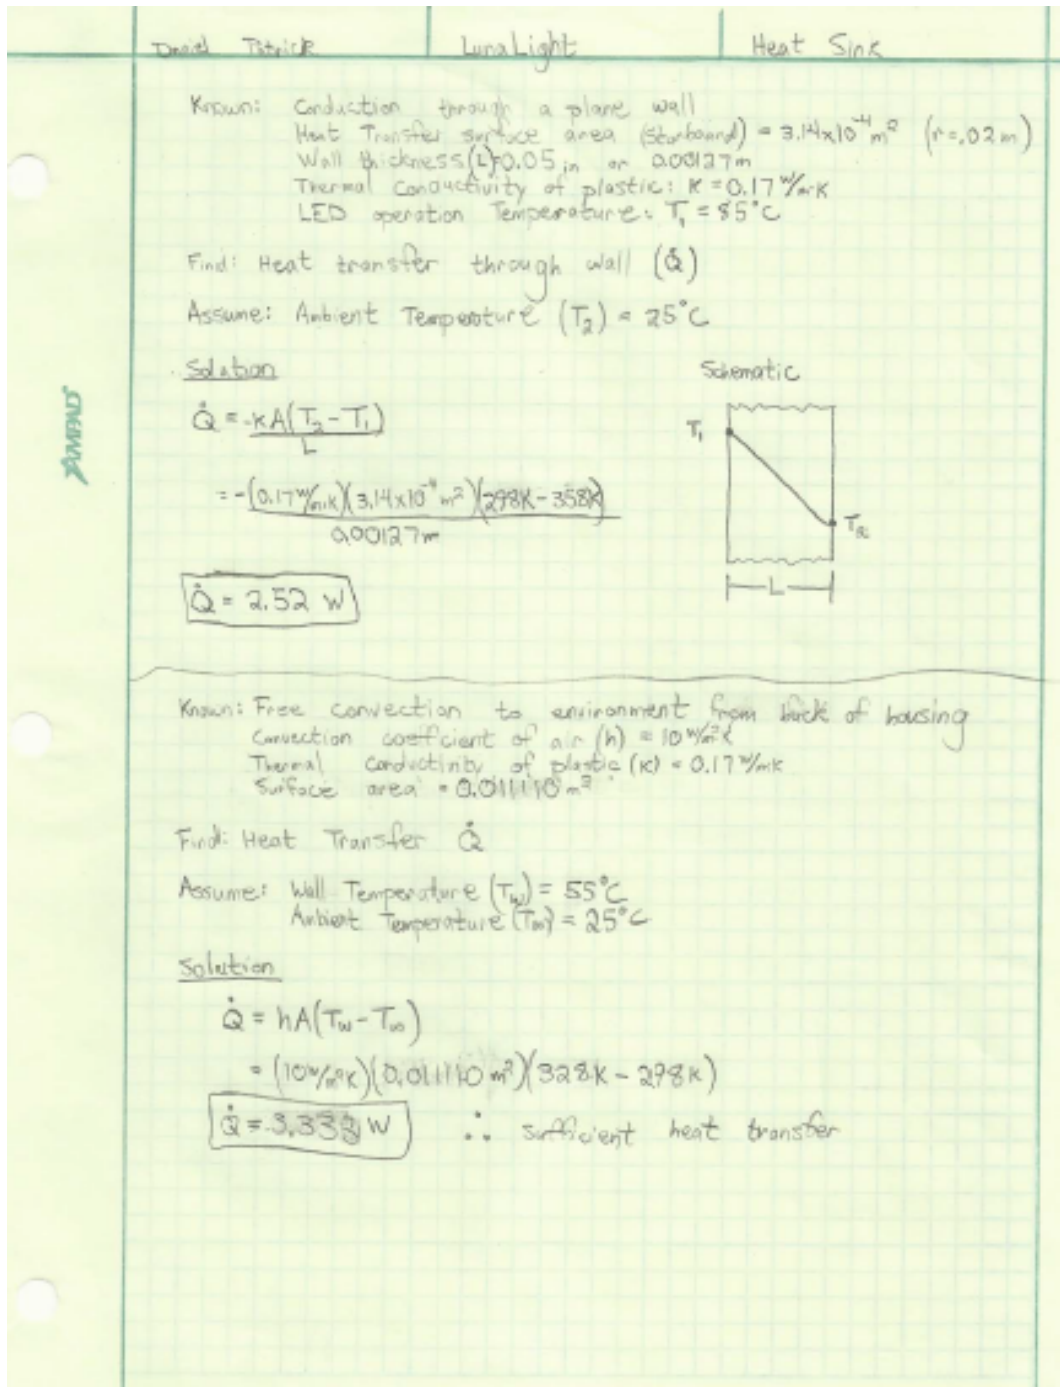 Daniel Patrick LunaLight Heat Sink
Known: Conduction through a plane wall
Heat Transfer surface area (starboard) = 3.14x10^-4 m² (r=.02m)
Wall thickness (L)=0.05 in or 0.00127m
Thermal Conductivity of plastic: K = 0.17 W/mK
LED operation Temperature: T₁ = 85°C
Find: Heat transfer through wall (Q̇)
Assume: Ambient Temperature (T₂) = 25°C
Solution
Schematic
Q̇ = -KA(T₂ - T₁)
L
= -(0.17 W/m·K)(3.14x10^-4 m²)(298K - 358K)
0.00127m
Q̇ = 2.52 W
T₁
T₂
L
AMPAD
Known: Free convection to environment from back of housing
Convection coefficient of air (h) = 10 W/m²K
Thermal Conductivity of plastic (K) = 0.17 W/mK
Surface area = 0.011110 m²
Find: Heat Transfer Q̇
Assume: Wall Temperature (Tw) = 55°C
Ambient Temperature (T∞) = 25°C
Solution
Q̇ = hA(Tw - T∞)
= (10 W/m²K)(0.011110 m²)(328K - 298K)
Q̇ = 3.333 W ∴ sufficient heat transfer